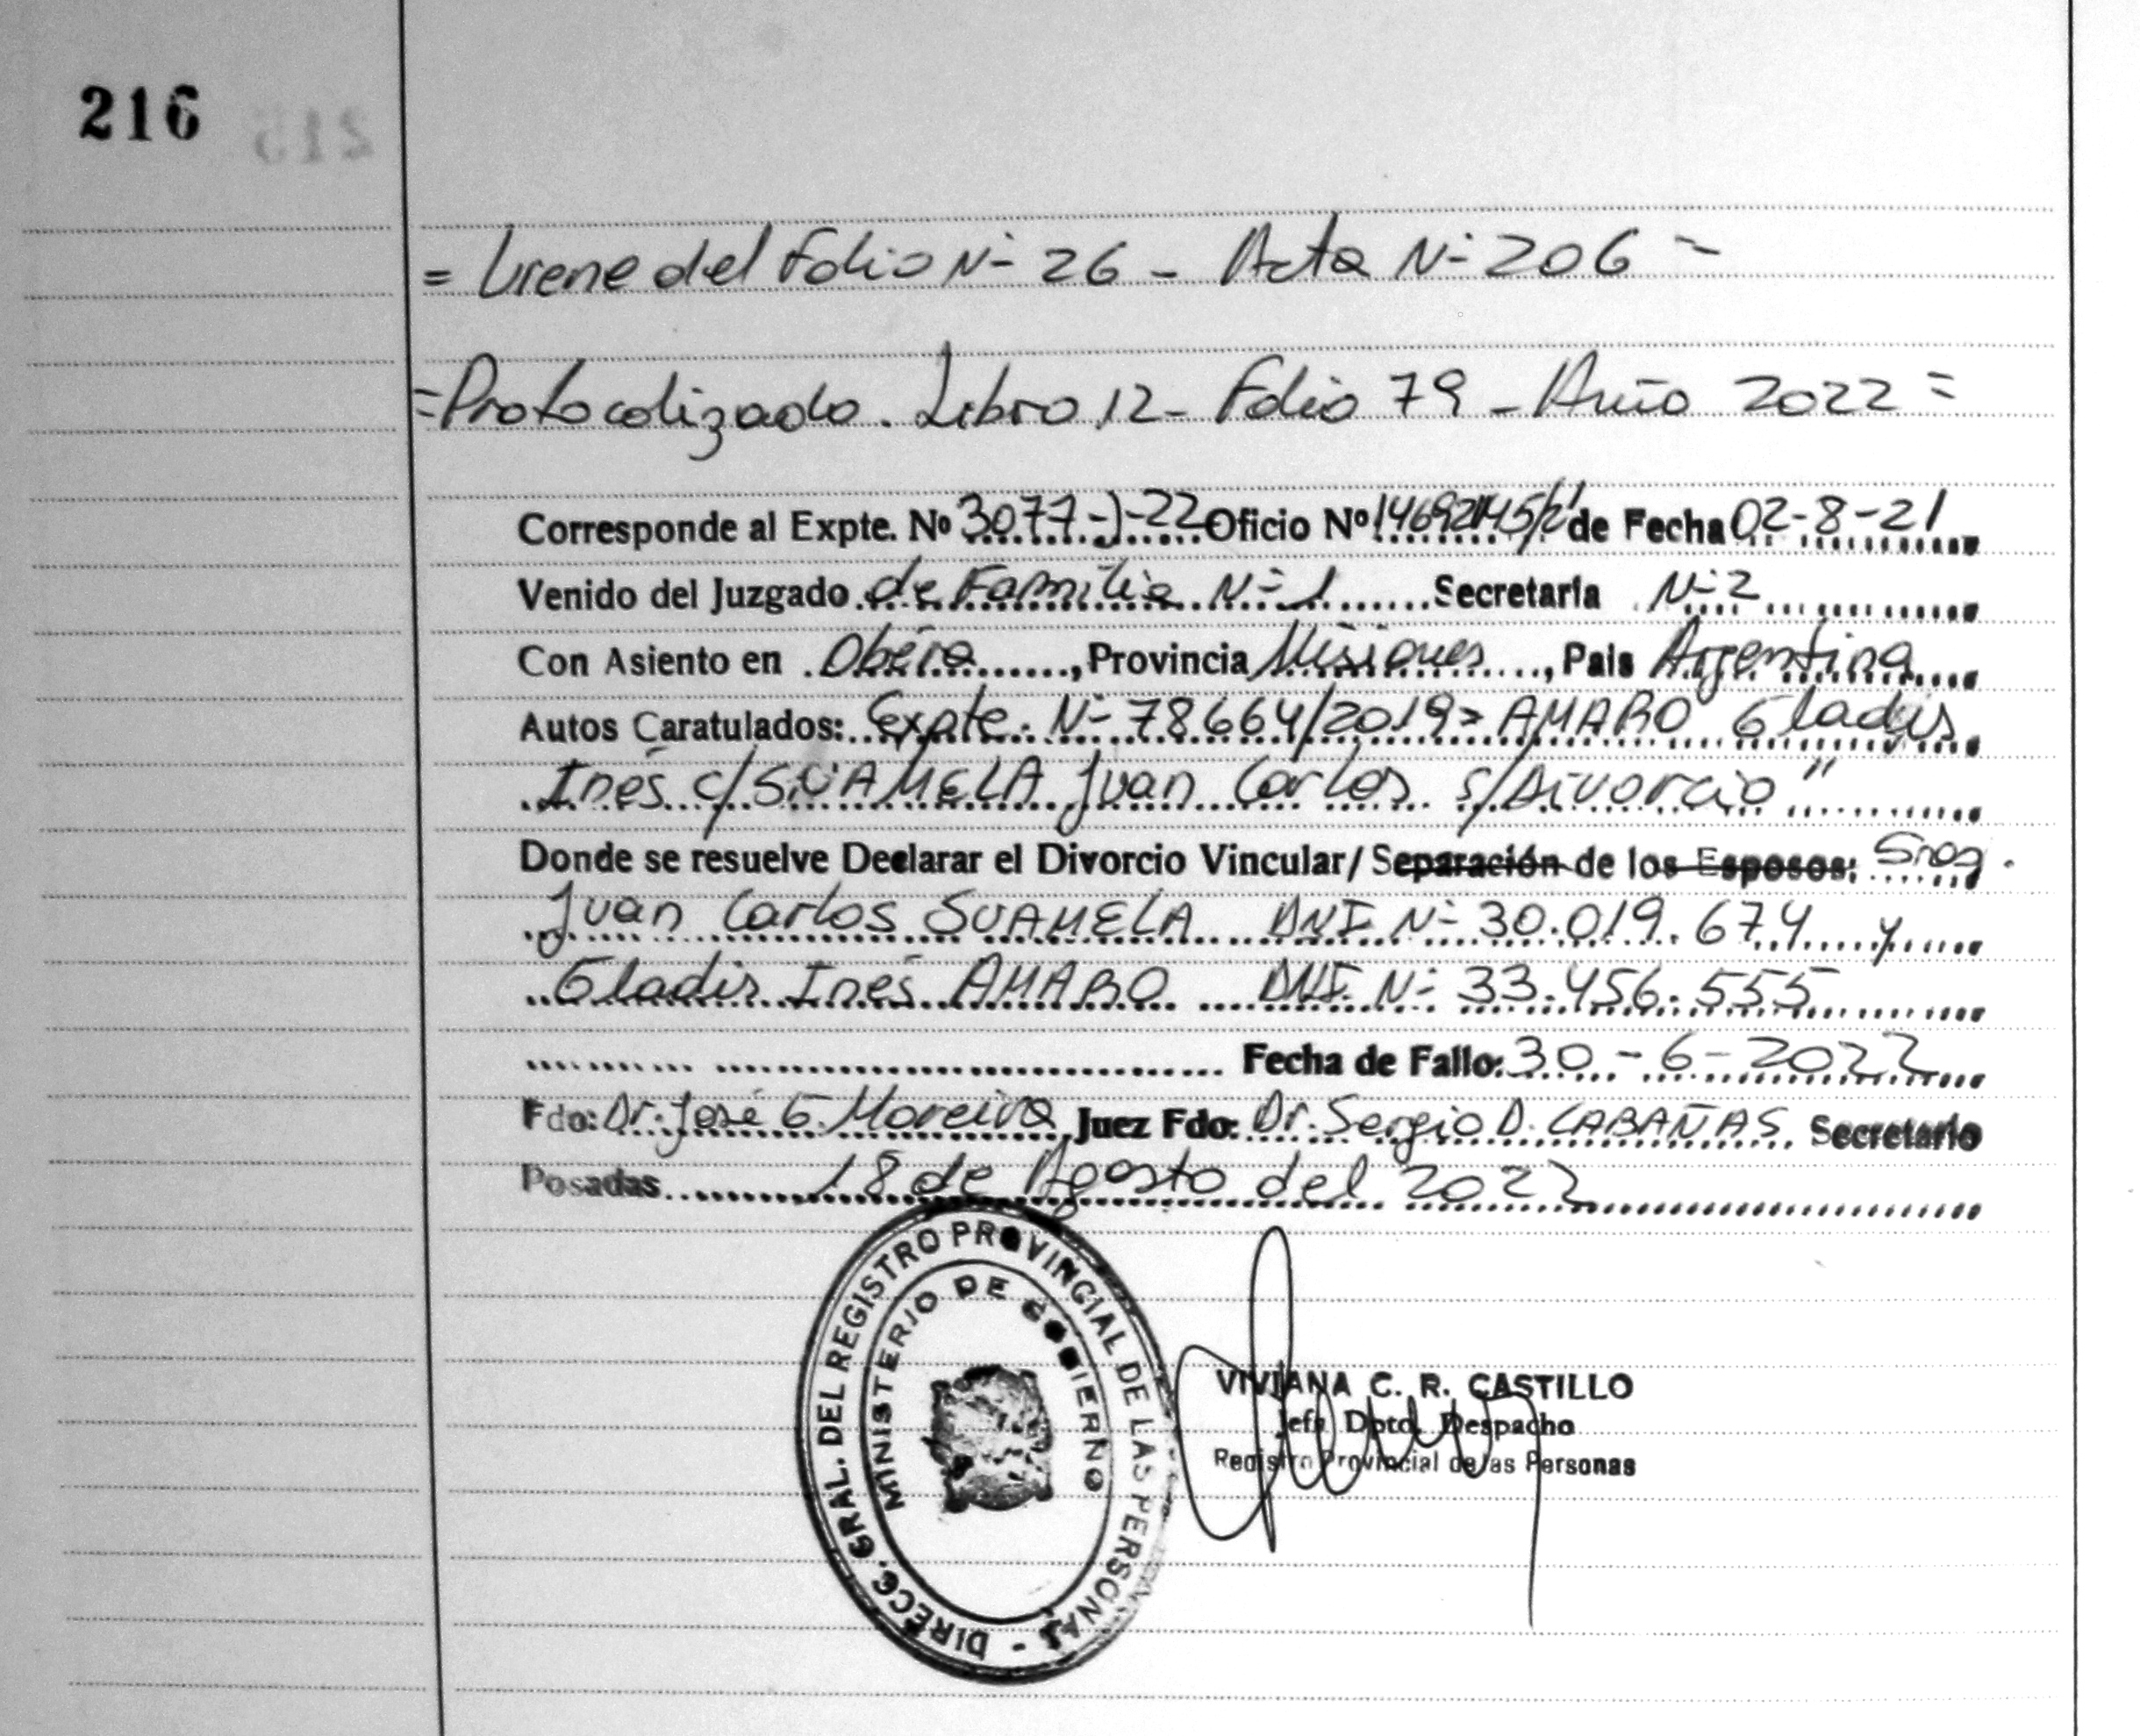 216
= Viene del Folio Nº 26 - Acta Nº 206 =
= Protocolizado. Libro 12 - Folio 79 - Año 2022 =
Corresponde al Expte. Nº 3077-J-22 Oficio Nº de Fecha 02-8-21
Venido del Juzgado de Familia Nº 1 Secretaria Nº 2
Con Asiento en Oberá, Provincia Misiones, Pais Argentina
Autos Caratulados: Expte. Nº 78664/2019 AMARO Gladis
Inés c/SUAMELA Juan Carlos s/Divorcio"
Donde se resuelve Declarar el Divorcio Vincular/ Separación de los Esposos: Sres.
Juan Carlos SUAMELA DNI Nº 30.019.674 y
Gladis Inés AMARO DNI Nº 33.456.555
Fecha de Fallo: 30-6-2022
Fdo: Dr. José G. Moreira, Juez Fdo: Dr. Sergio D. CABAÑAS. Secretario
Posadas 18 de Agosto del 2022
DIRECC. GRAL. DEL REGISTRO PROVINCIAL DE LAS PERSONAS -
MINISTERIO DE GOBIERNO
VIVIANA C. R. CASTILLO
Jefa Dpto. Despacho
Registro Provincial de las Personas